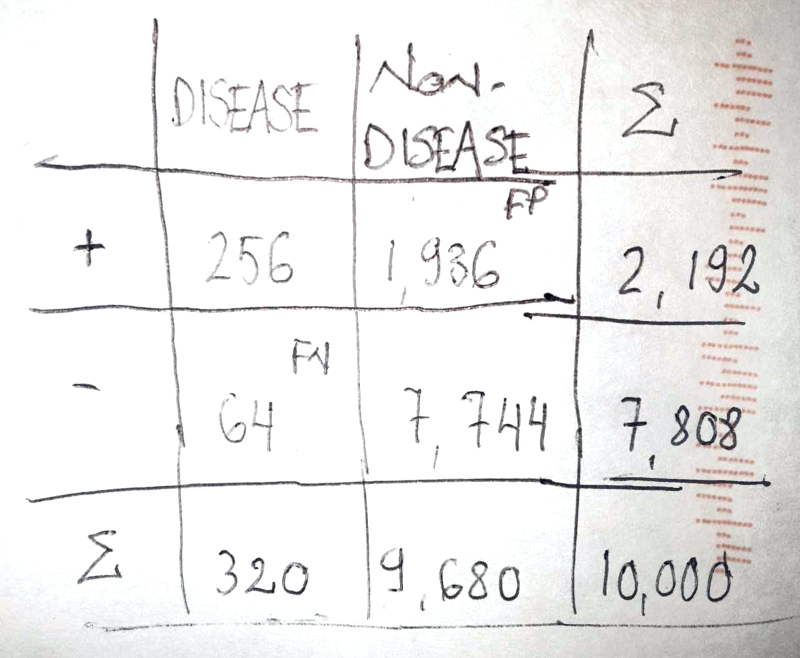 DISEASE Non-DISEASE Σ
FP
+ 256 1,936 2,192
FN
- 64 7,744 7,808
Σ 320 9,680 10,000